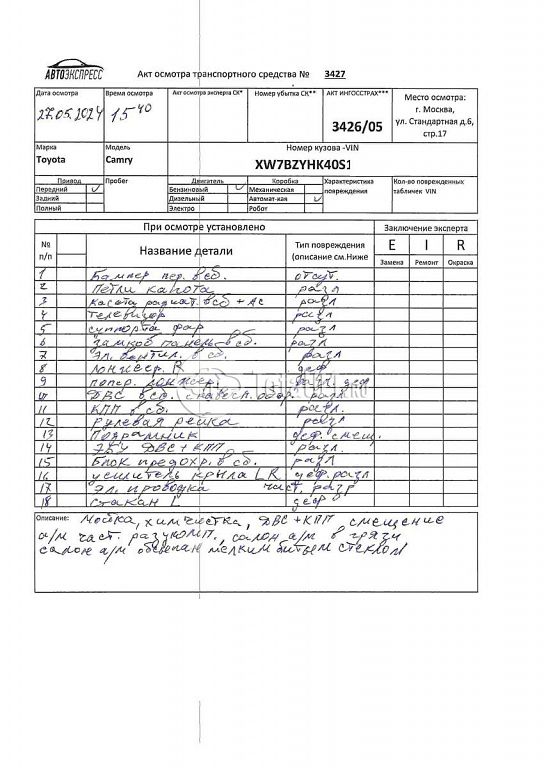 АВТОЭКСПРЕСС
Акт осмотра транспортного средства № 3427
Дата осмотра Время осмотра Акт осмотра эксперта СК* Номер убытка СК** АКТ ИНГОССТРАХ*** Место осмотра:
27.05.2024 15 40 3426/05 г. Москва, ул. Стандартная д.6, стр.17
Марка Модель Номер кузова -VIN
Toyota Camry XW7BZYHK40S1
Привод Пробег Двигатель Коробка Характеристика повреждения Кол-во поврежденных табличек VIN
Передний Бензиновый Механическая
Задний Дизельный Автомат-кая
Полный Электро Робот
При осмотре установлено Заключение эксперта
№ п/п Название детали Тип повреждения (описание см.Ниже E I R
Замена Ремонт Окраска
1 Бампер пер. в сб. отсут.
2 Петли капота разл
3 касета радиат. в сб + АС разл
4 Телевизор разл
5 суппорта фар разл
6 замков панель в сб. разл
7 Эл. вентил. в сб. разл
8 Лонжер. R деф
9 попер. лонжер разл. деф
10 ДВС в сб. с навесн. обор. разл
11 КПП в сб. разл.
12 Рулевая рейка разл
13 Подрамник деф. смещ.
14 ЭБУ ДВС + КПП разл.
15 Блок предохр. в сб. разл
16 усилитель крыла L R деф. разл
17 Эл. проводка част. разр
18 Стакан L деф
Описание: Мойка, химчистка, ДВС + КПП смещение
а/м част. разукомп., салон а/м в грязи
салон а/м обсыпан мелким битым стеклом